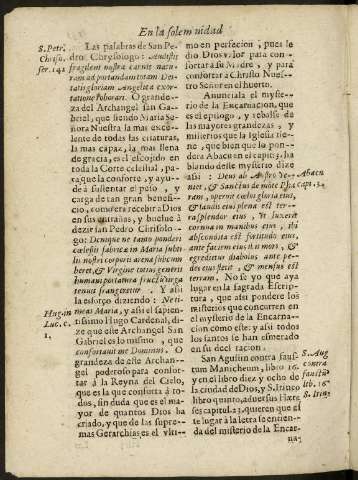 En la solemnidad
S. Petr.
Chriso.
ser. 142
Las palabras de San Pe-
dro Chrysologo: Audistis
fragilem nostræ carnis natu-
ram ad portandam totam Dei-
tatis gloriam Angelica exor-
tatione roborari. O grande-
za del Archangel san Ga-
briel, que siendo Maria Se-
ñora Nuestra la mas exce-
lente de todas las criaturas,
la mas capaz, la mas llena
de gracia, es el escojido en
toda la Corte celestial, pa-
ra que la conforte, y ayu-
de à sustentar el peso, y
carga de tan gran benefi-
cio, como era recebir a Dios
en sus entrañas, y buelue à
dezir san Pedro Chrisolo-
go: Denique ne tanto ponderi
cœlestis fabricæ in Maria subti-
lis nostri corporis arena succum
beret, & Virgine totius generis
humani portatura fructũ virga
tenuis frangeretur. Y assi
la esforço diziendo: Ne ti-
meas Maria, y assi el sapien-
Hug. in
Luc. c.
1.
tissimo Hugo Cardenal, di-
ze que este Archangel San
Gabriel es lo mismo, que
confortauit me Dominus. O
grandeza de este Archan-
gel poderoso para confor-
tar à la Reyna del Cielo,
que es la que conforta à to-
dos, sin duda que es el ma-
yor de quantos Dios ha
criado, y que de las supre-
mas Gerarchias es el vlti-
mo en perfecion, pues le
dio Dios valor para con-
fortar a su Madre, y para
confortar à Christo Nues-
tro Señor en el huerto.
Anunciala el myste-
rio de la Encarnacion, que
es el epilogo, y rebalse de
las mayores grandezas, y
misterios que la Iglesia tie-
ne, que bien que lo pon-
dera Abacu en el capit. 3. ha
blando deste mysterio dize
assi: Deus ab Austro ve-
niet, & Sanctus de mōte Phara
Abacu
capi. 3.
tam, operuit cœlos gloria eius,
& laudis eius plena est terra
splendor eius, vt lux erit
cornua in manibus eius, ibi
abscondita est fortitudo eius,
ante faciem eius ibit mors, &
egredietur diabolus ante pe-
des eius stetit, & mensus est
terram. No se yo que aya
lugar en la sagrada Escrip-
tura, que assi pondere los
misterios que concurren en
el mysterio de la Encarna-
cion como este: y assi todos
los santos se han esmerado
en su declaracion.
San Agustin contra faus-
tum Manicheum, libro 16.
y en el libro diez y ocho de
la ciudad de Dios, S. Irineo
libro quinto, aduersus Hære
ses capitul. 23. quieren que es
te lugar à la letra se entien-
da del misterio de la Encar-
S. Aug
contra
faustũ
lib. 16
S. Irine
na-